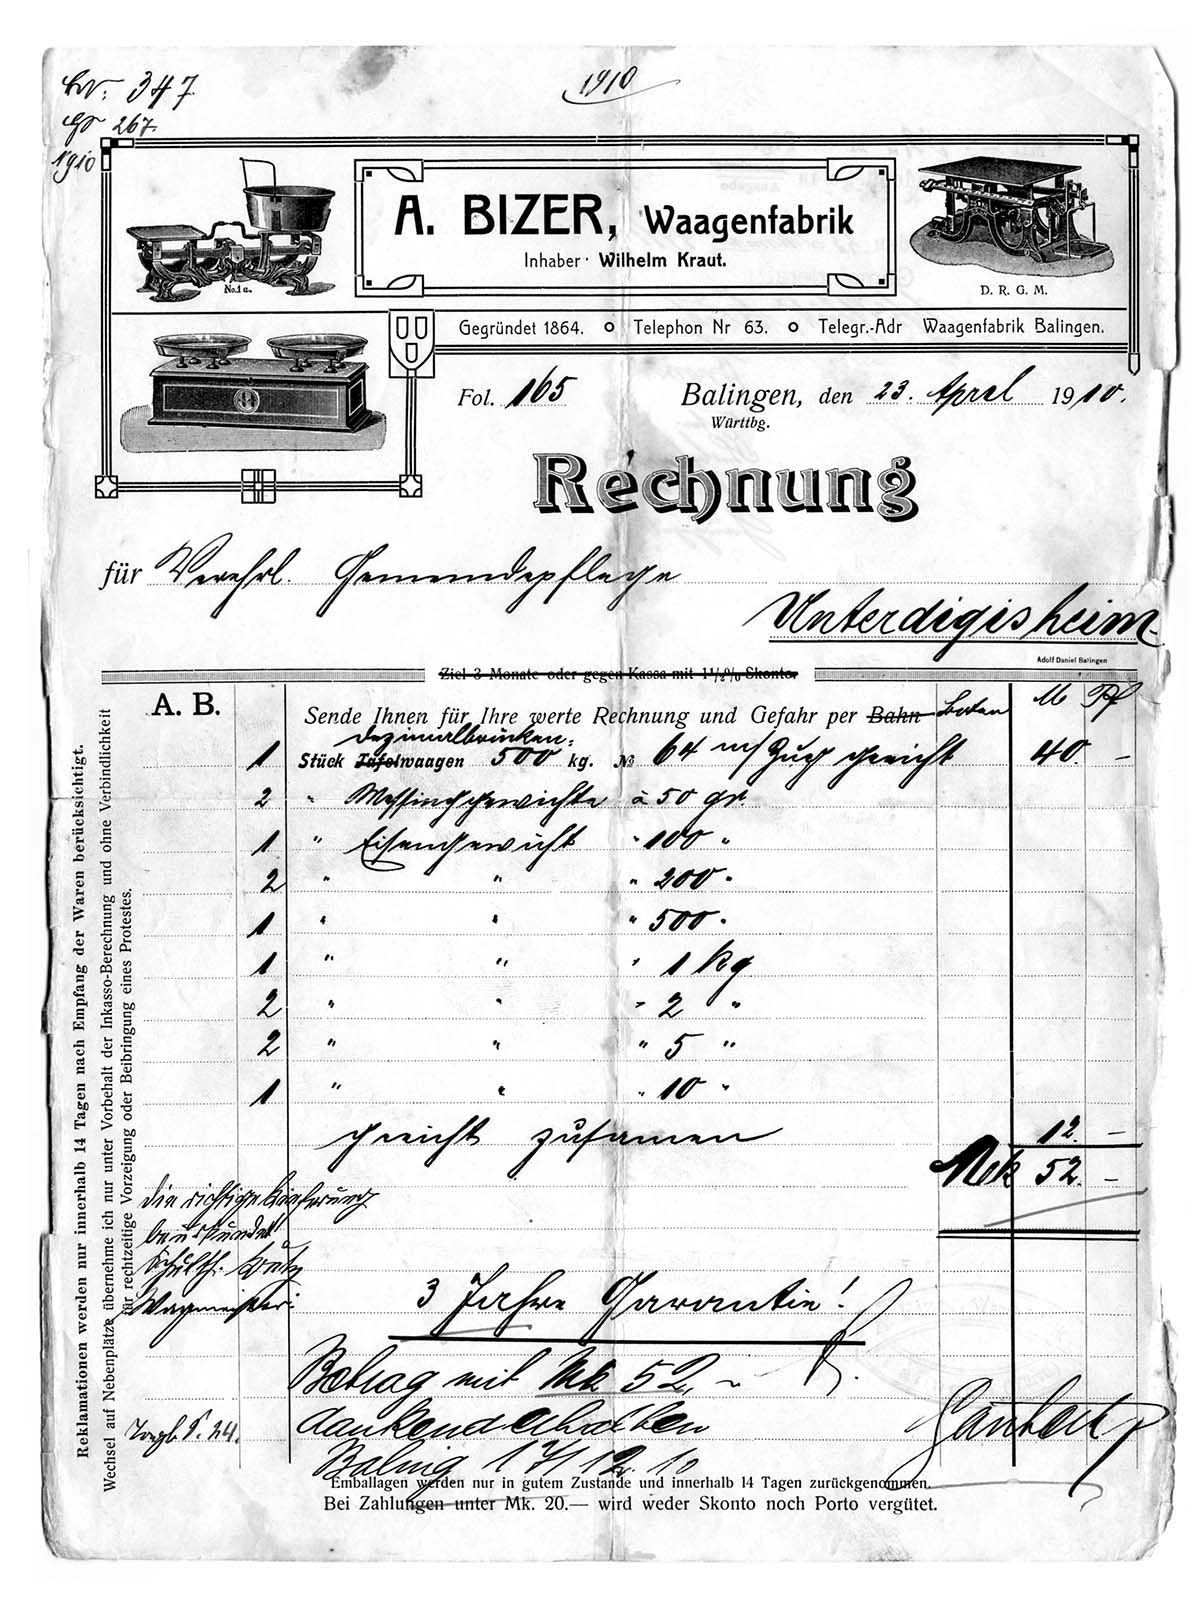 347
1910
267.
1910
A. BIZER, Waagenfabrik
Inhaber · Wilhelm Kraut.
No.1a.
D. R. G. M.
Gegründet 1864. o Telephon Nr 63. o Telegr.-Adr Waagenfabrik Balingen.
Fol. 165
Balingen, den 23. April 1910.
Württbg.
Rechnung
für Verehrl. Gemeindepflege
Unterdigisheim
Adolf Daniel Balingen
Ziel 3 Monate oder gegen Kassa mit 1½% Skonto.
A. B.
M Pf
Sende Ihnen für Ihre werte Rechnung und Gefahr per Bahn Boten
dezimalbrücken-
1 Stück Tafelwaagen 500 kg. № 64 m/Zug geeicht 40. –
2 " Messinggewichte à 50 gr.
1 " Eisengewicht " 100 "
2 " " " 200 "
1 " " " 500 "
1 " " " 1 kg
2 " " " 2 "
2 " " " 5 "
1 " " " 10 "
geeicht zusamen 12. –
Mk 52. –
die richtige Lieferung
beurkundet
Schulth.
3 Jahre Garantie!
Betrag mit Mk 52,–
dankend erhalten
Baling 17/12. 10
24.
Emballagen werden nur in gutem Zustande und innerhalb 14 Tagen zurückgenommen.
Bei Zahlungen unter Mk. 20.— wird weder Skonto noch Porto vergütet.
Reklamationen werden nur innerhalb 14 Tagen nach Empfang der Waren berücksichtigt.
Wechsel auf Nebenplätze übernehme ich nur unter Vorbehalt der Inkasso-Berechnung und ohne Verbindlichkeit
für rechtzeitige Vorzeigung oder Beibringung eines Protestes.